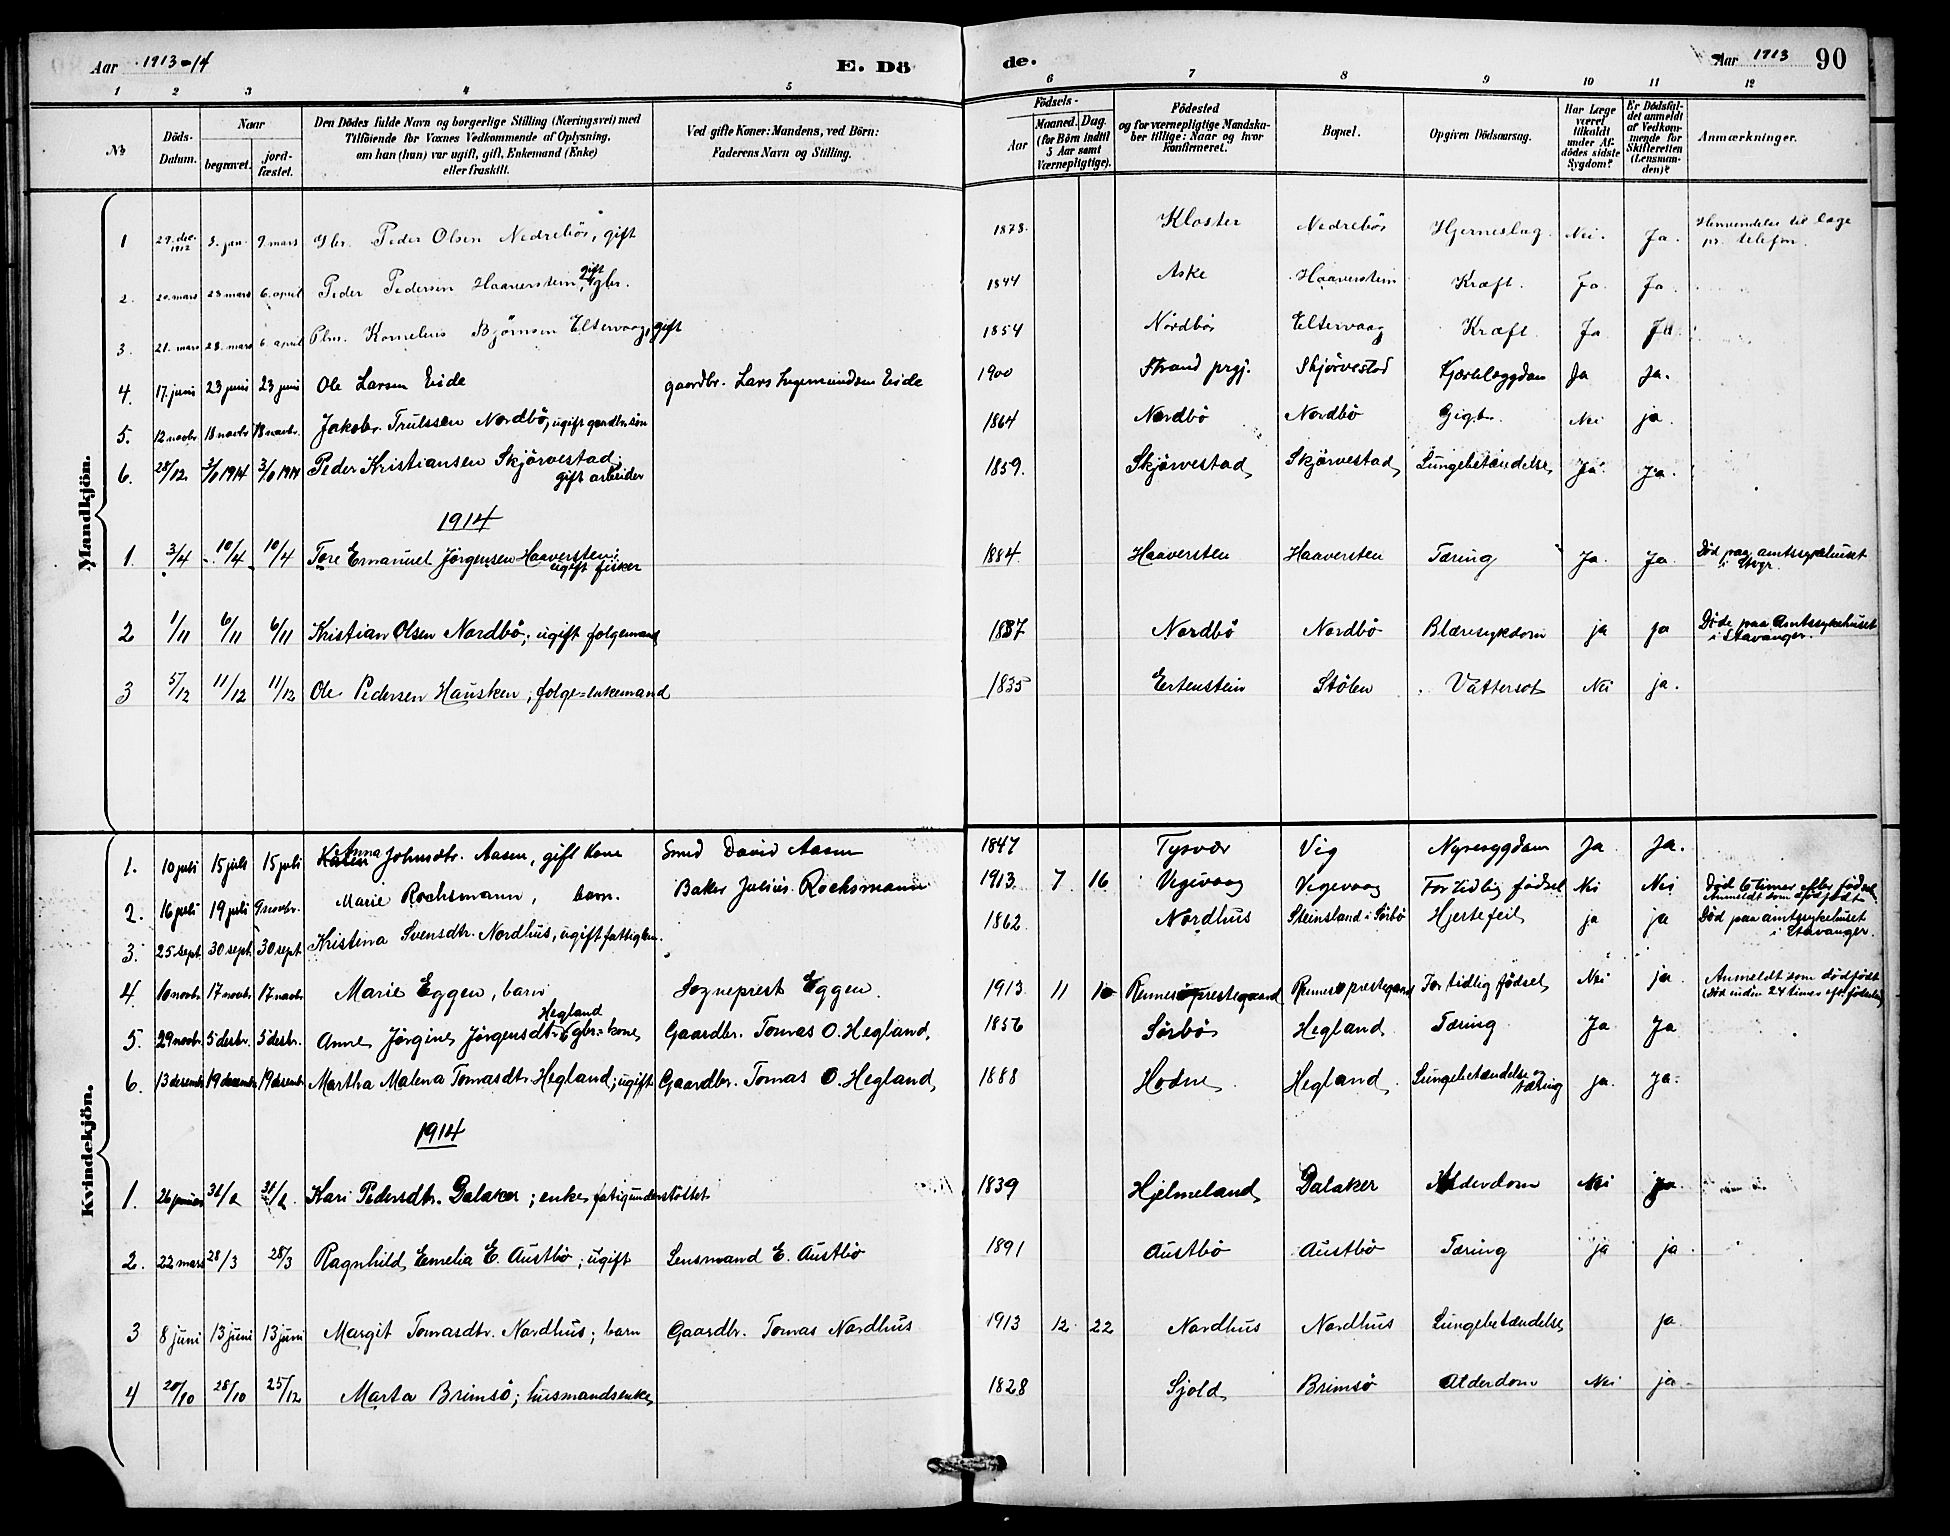 Aar 1913-14 E. Dö
de. Aar 1913 90
1 2 3 4 5 6 7 8 9 10 11 12
No
Döds-Datum.
Naar
begravet.
jord-fæstet.
Den Dödes fulde Navn og borgerlige Stilling (Næringsvei) med
Tilföiende for Voxnes Vedkommende af Oplysning,
om han (hun) var ugift, gift, Enkemand (Enke)
eller fraskilt.
Ved gifte Koner: Mandens, ved Börn:
Faderens Navn og Stilling.
Födsels-
Aar
Maaned. Dag.
(for Börn indtil
5 Aar samt
Værnepligtige).
Födested
og for værnepligtige Mandska-
ber tillige: Naar og hvor
konfirmeret.
Bopæl.
Opgiven Dödsaarsag.
Har Læge
været
tilkaldt
under Af-
dödes sidste
Sygdom?
Er Dödsfal-
det anmeldt
af Vedkom-
mende for
Skifteretten
(Lensman-
den)?
Anmærkninger.
Mandkjön.
1 29. dec. 1912 3. jan. 9 mars Gbr. Peder Olsen Nedrebös, gift 1878. Kloster Nedrebös Hjerneslag. Nei. Ja. Henvendelse til læge pr. telefon.
2. 20. mars 28 mars 6. april Peder Pedersen Haaverstein, gift gbr. 1844 Aske Haaverstein Kræft. Ja Ja.
3. 21. mars 28. mars 6. april Plm. Kornelius Bjørnsen Eltervaag, gift 1854 Nordbö Eltervaag Kræft. Ja Ja.
4. 17. juni 23 juni 23 juni Ole Larsen Eide gaardbr. Lars Ingemundsen Eide 1900 Strand prgj. Skjörvestad Ja Ja.
5. 12 novbr. 18 novbr 18 novbr. Jakob Trulssen Nordbö, ugift gardbr. sön 1864 Nordbö Nordbö Gigt. Nei ja.
6. 28/12 3/1 1914 3/1 1914 Peder Kristiansen Skjörvestad; gift arbeider 1859. Skjörvestad Skjörvestad Lungebetændelse Ja Ja.
1914
1. 3/4 10/4 10/4 Tore Emanuel Jörgensen Haaversten; ugift fisker 1884 Haaversten Haaversten Tæring Ja. Ja. Död paa amtssykehuset i Stvgr.
2 1/11 6/11 6/11 Kristian Olsen Nordbö; ugift folgemand 1837 Nordbö Nordbö Blæresykdom ja ja Döde paa Amtssykehuset i Stavanger.
3 5/12 11/12 11/12 Ole Pedersen Hausken; folge=enkemand 1835 Eertenstein Stölen Vattersot Nei ja.
Kvindekjön.
1. 10 juli 15 juli 15 juli Anna Johnsdtr. Aasen, gift Kone Smed David Aasen 1847 Tysvær Vig Nyresygdom Ja Ja.
2. 16 juli 19 juli 9 novbr. Marie Rochsmann, barn. Baker Julius Rochsmann 1913. 7 16 Vigevaag Vigevaag For tidlig födsel Nei Nei Död 6 timer efter födsel Anmeldt som dödfödt
3. 25 sept 30 sept. 30 sept. Kristina Svensdtr. Nordhus, ugift fattiglem. 1862 Nordhus Steinsland i Sörbö Hjertefeil ja ja Död paa amtssykehuset i Stavanger.
4. 10 novbr. 17 novbr 17 novbr Marie Eggen, barn Sogneprest Eggen. 1913 11 10 Rennesö prestegaard Rennesö prestegaard For tidlig födsel Nei ja. Anmeldt som dödfödt (död inden 24 timer eft. födselen)
5. 29 novbr. 5 desbr. 5 desbr. Anne Jörgine Jörgensdtr. Hegland gbr=kone Gaardbr. Tomas O. Hegland. 1856 Sörbö Hegland Tæring Ja Ja
6. 13 desembr 19 desembr 19 desembr Martha Malena Tomasdtr. Hegland; ugift Gaardbr. Tomas O. Hegland 1888 Hodne Hegland Lungebetændelse og tæring ja. ja.
1914
1. 26 januar 31/2 31/2 Kari Pedersdtr. Dalaker; enke, fatigunderstöttet 1839 Hjelmeland Dalaker Alderdom Nei ja
2. 22 mars 28/3 28/3 Ragnhild Emelia E. Austbö; ugift Lensmand E. Austbö 1891 Austbö Austbö Tæring ja ja
3 8 juni 13 juni 13 juni Margit Tomasdtr. Nordhus; barn Gaardbr. Tomas Nordhus 1913 12 22 Nordhus Nordhus Lungebetændelse ja
4 20/10 28/10 25/12 Marta Brimsö; husmandsenke 1828 Sjold Brimsö Alderdom Nei ja